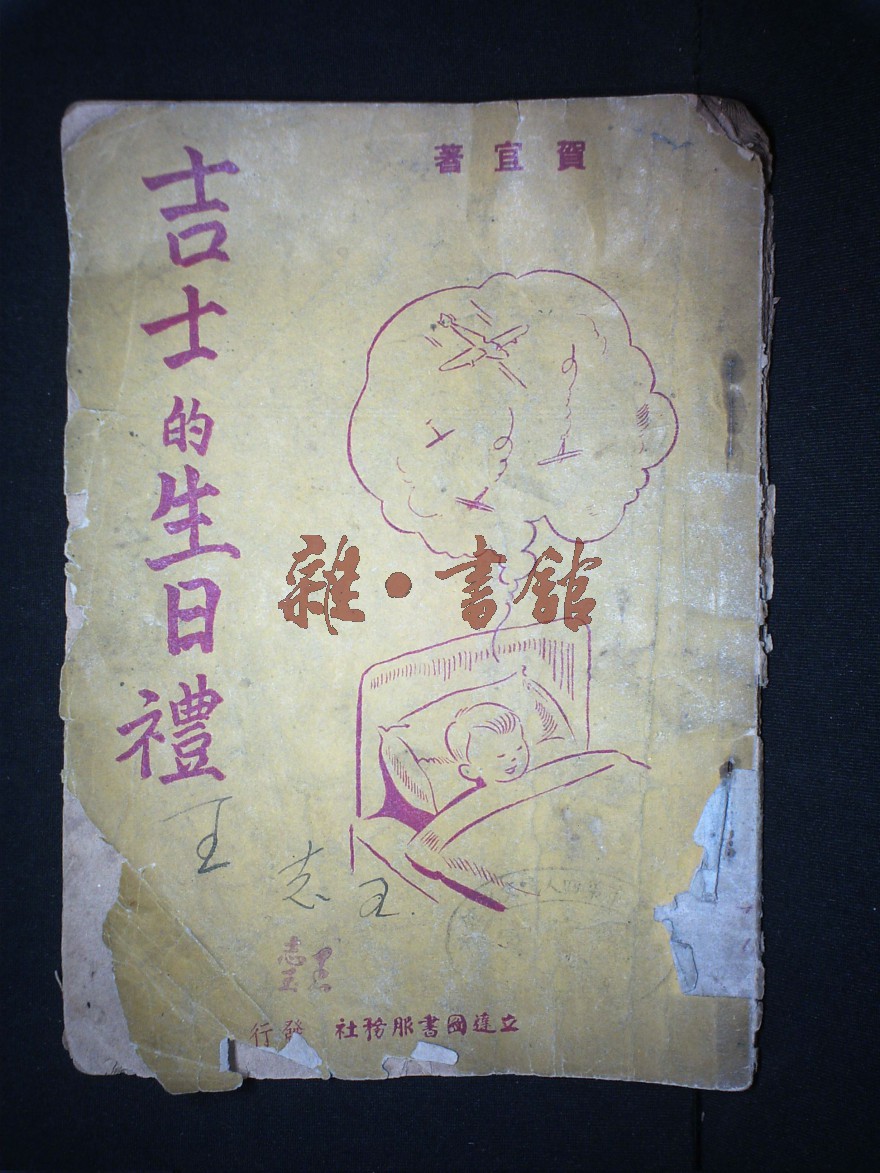 賀宜著
吉士的生日禮
雜·書館
王志玉
立達圖書服務社 發行